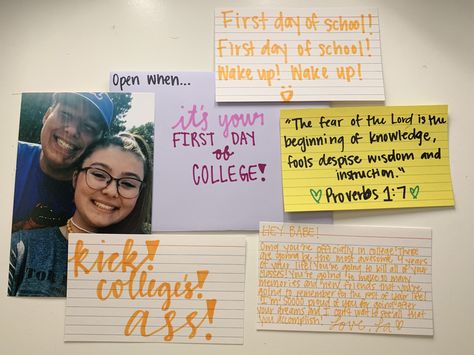 First day of school!
First day of school!
Wake up! Wake up!
Open when...
it's your
FIRST DAY
of
COLLEGE!
"The fear of the Lord is the
beginning of knowledge,
fools despise wisdom and
instruction."
Proverbs 1:7
kick!
college's!
ass!
HEY BABE!
Omg you're officially in college! These
are gonna be the most awesome 4 years
of your life! You're going to kill all of your
classes! You're going to make so many
memories and new friends that you're
going to remember for the rest of your life!
I'm soooo proud of you for going after
your dreams and I can't wait to see all that
you accomplish! Love,